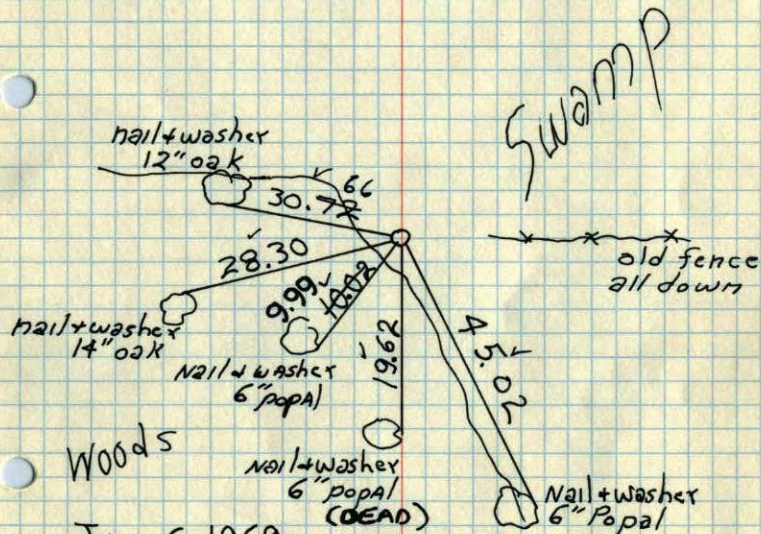 Swamp
nail + washer
12" oak
66
30.72
old fence
all down
28.30
nail + washer
14" oak
9.99 10.02
Nail & washer
6" popAl
19.62
45.02
Woods
Nail + washer
6" popAl
(DEAD)
Nail + washer
6" Popal